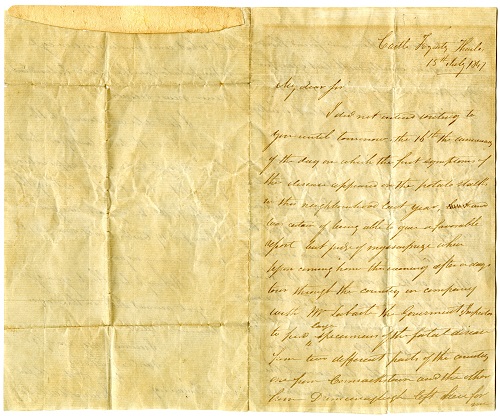 Castle
15th July 1847
My dear Sir
I did not intend writing to
you until tomorrow the 16th the anniversary
of the day on which the first symptoms of
the disease appeared on the potato stalks
in this neighbourhood last year and
too certain of being able to give a favorable
report but judge of my surprise when
upon coming home this evening after a day's
tour through the country in company
with Mr Labart the Government Inspector
to find specimens of the potato disease
from two different parts of the country
one from and the other
from left here for